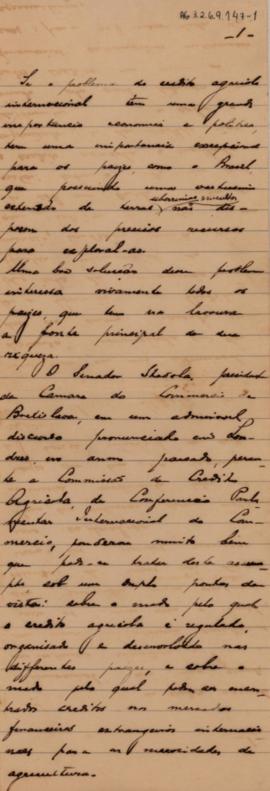 AG 3.2.6.9.147-1
-1-
Se o problema do credito agricola
internacional tem uma grande
importancia economica e politica,
tem uma importancia excepcional
para os paizes, como o Brasil,
que possuindo uma vastissima
extensão de terras não dis-
põem dos precisos recursos
para exploral-as.
Uma boa solução desse problema
interessa vivamente todos os
paizes, que tem na lavoura
a fonte principal de sua
riqueza.
O Senador Stodola, presidente
da Camara do Commercio de
Bratislava, em um admiravel
discurso pronunciado em Lon-
dres, no anno passado, peran-
te a Commissão de Credito
Agricola, da Conferencia Parla-
mentar Internacional do Com-
mercio, ponderou muito bem
que pode-se tratar deste assum-
pto sob um duplo ponto de
vista: sobre o modo pelo qual
o credito agricola é regulado,
organisado e desenvolvido nos
differentes paizes, e sobre o
modo pelo qual podem ser encon-
trados creditos nos mercados
financeiros extrangeiros internacio-
naes para as necessidades da
agricultura.